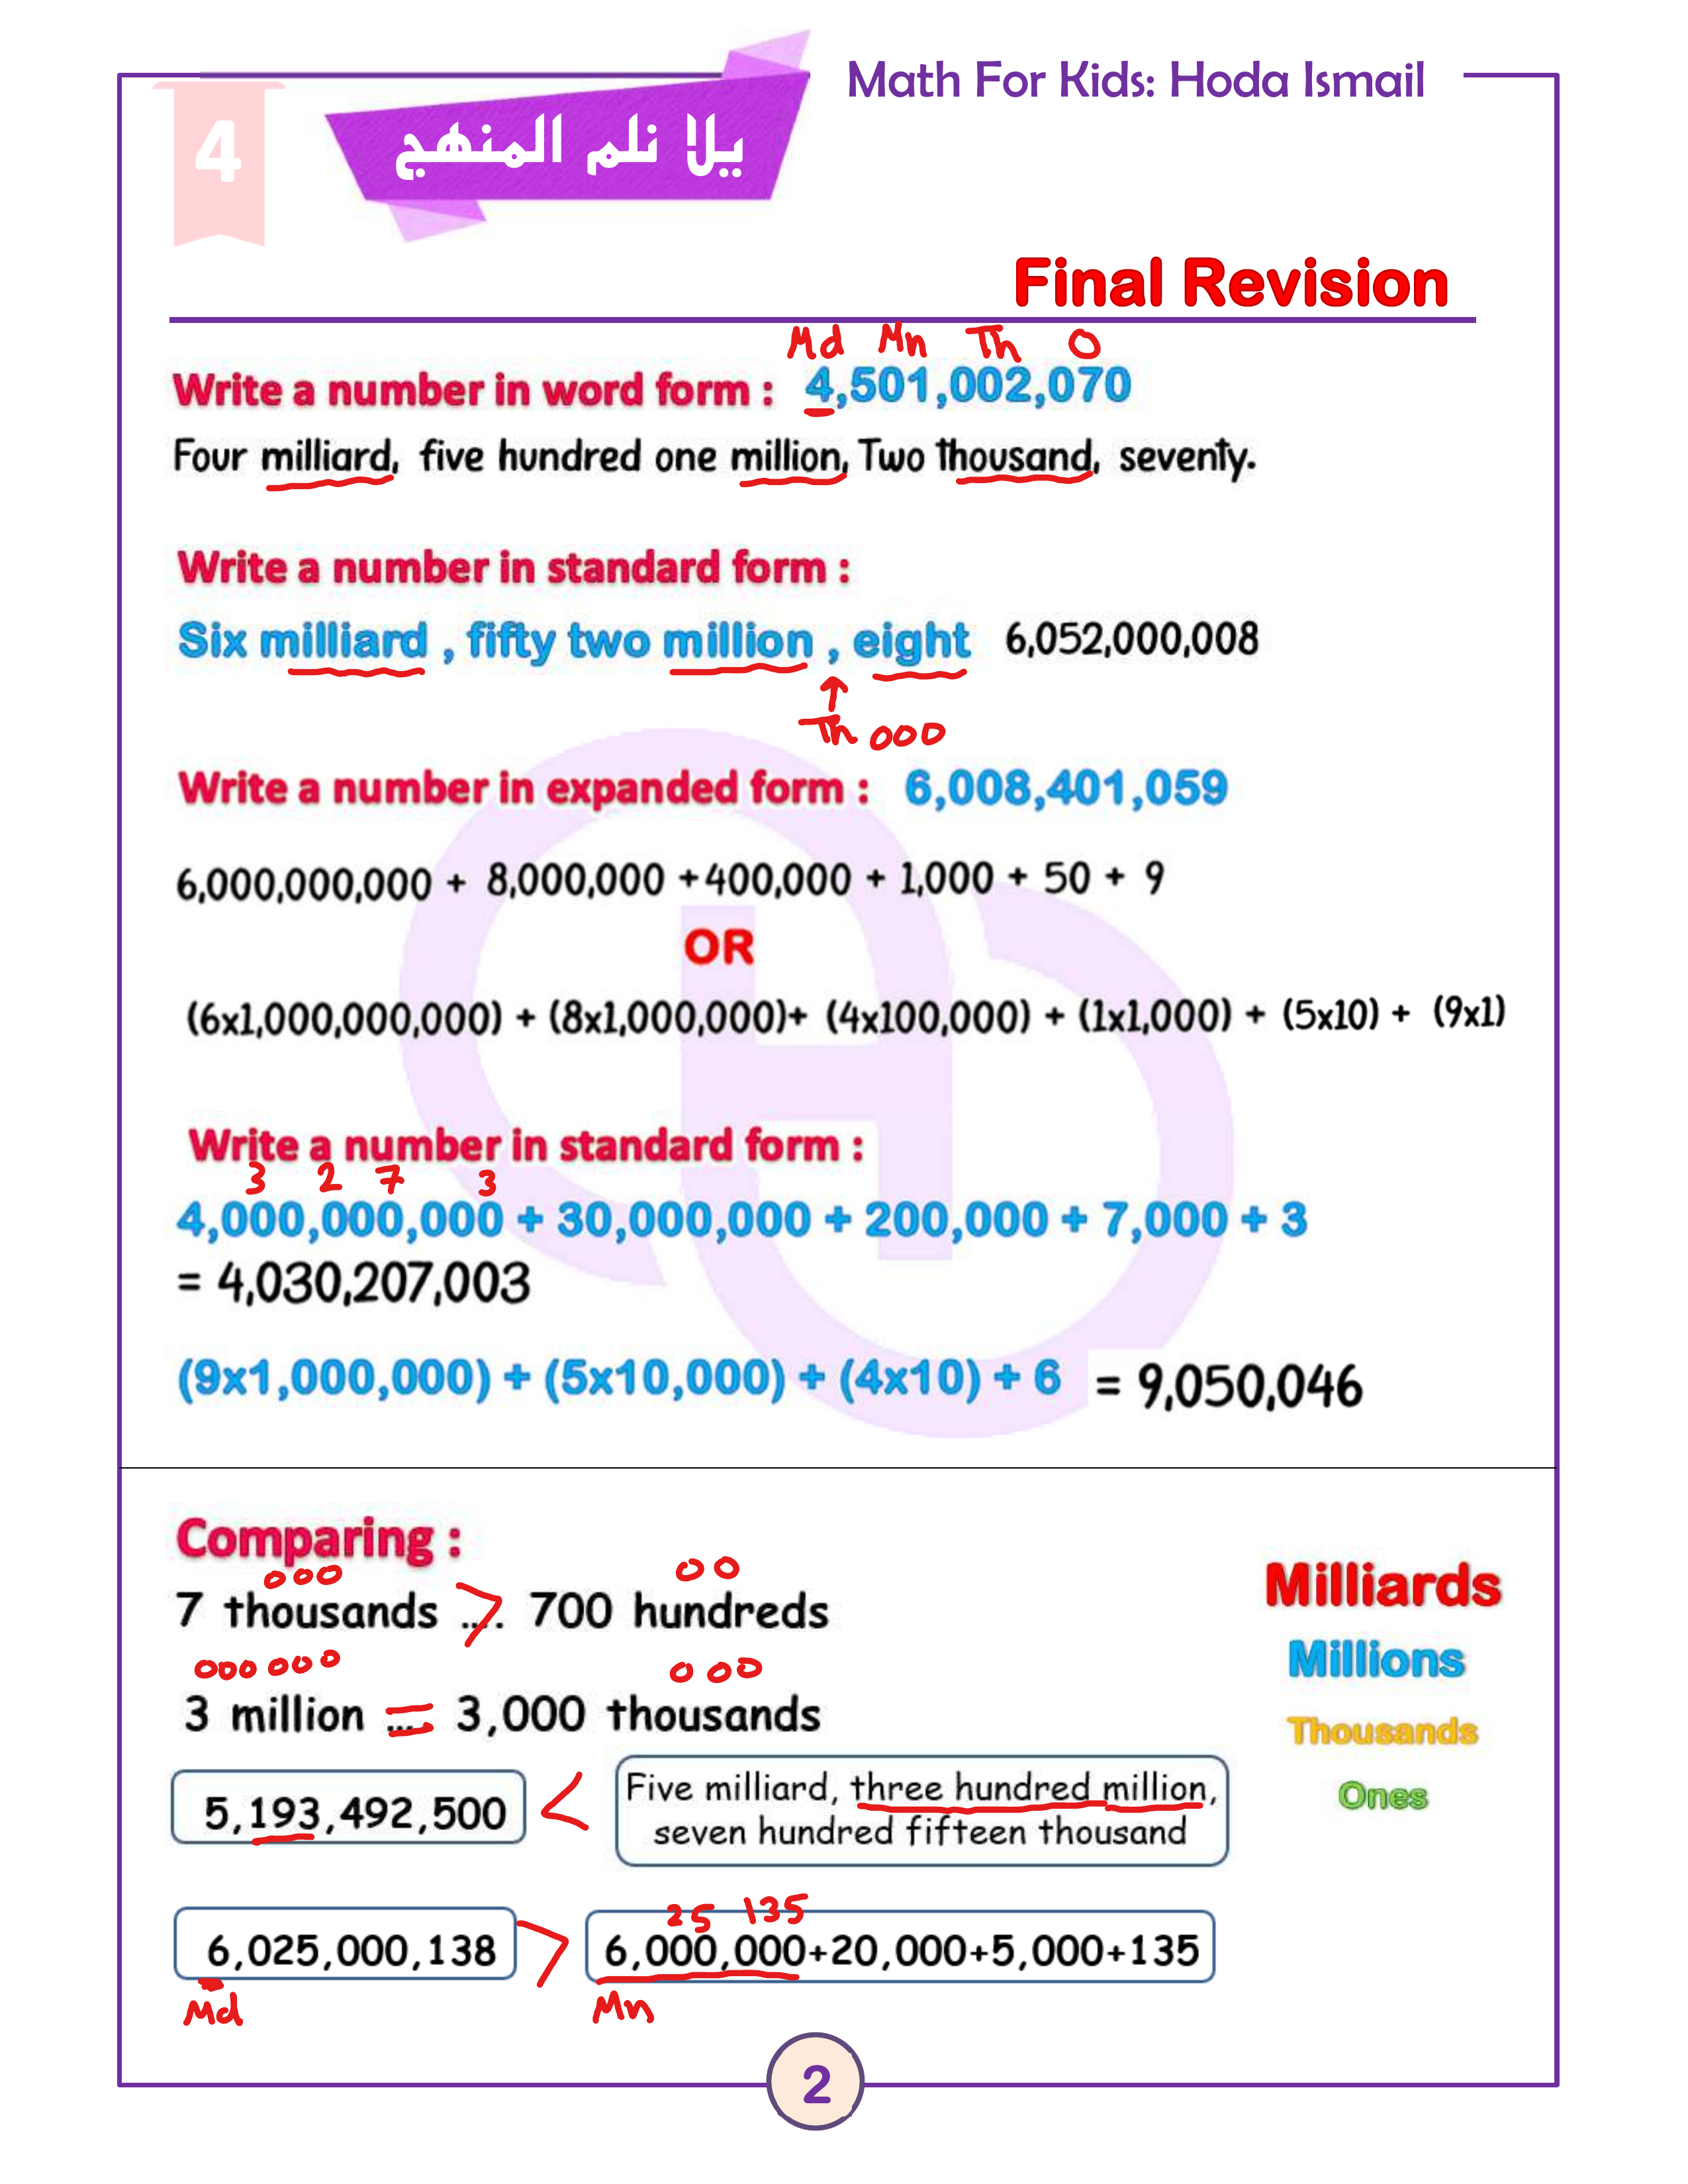 Math For Kids: Hoda Ismail
4
يلا نلم المنهج
Final Revision
Md Mn Th O
Write a number in word form : 4,501,002,070
Four milliard, five hundred one million, Two thousand, seventy.
Write a number in standard form :
Six milliard , fifty two million , eight 6,052,000,008
Th 000
Write a number in expanded form : 6,008,401,059
6,000,000,000 + 8,000,000 +400,000 + 1,000 + 50 + 9
OR
(6x1,000,000,000) + (8x1,000,000)+ (4x100,000) + (1x1,000) + (5x10) + (9x1)
Write a number in standard form :
3 2 7 3
4,000,000,000 + 30,000,000 + 200,000 + 7,000 + 3
= 4,030,207,003
(9x1,000,000) + (5x10,000) + (4x10) + 6 = 9,050,046
Comparing :
000 00
7 thousands .... > 700 hundreds
000 000 000
3 million .... = 3,000 thousands
5,193,492,500 < Five milliard, three hundred million,
seven hundred fifteen thousand
25 135
6,025,000,138 > 6,000,000+20,000+5,000+135
Md Mn
Milliards
Millions
Thousands
Ones
2